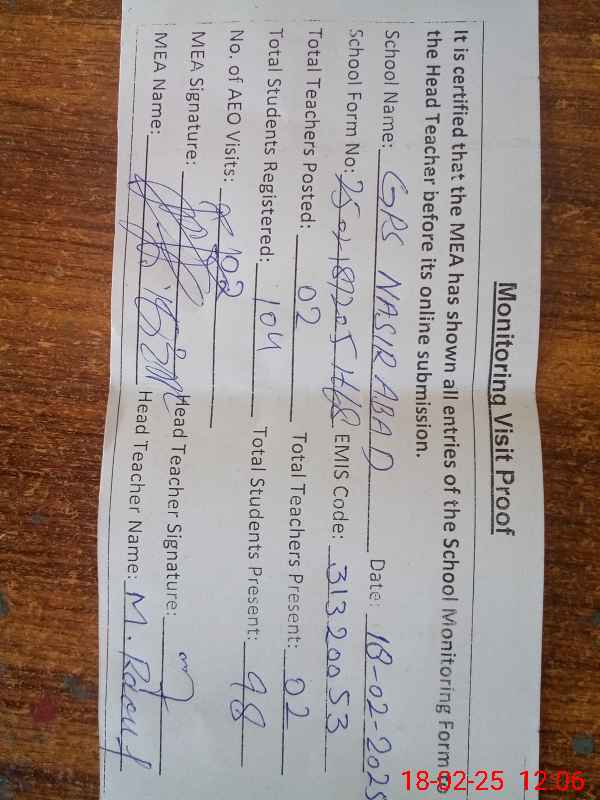 Monitoring Visit Proof
It is certified that the MEA has shown all entries of the School Monitoring Form to
the Head Teacher before its online submission.
School Name: GPS NASIRABAD Date: 18-02-2025
School Form No: EMIS Code: 31320053
Total Teachers Posted: 02 Total Teachers Present: 02
Total Students Registered: 104 Total Students Present: 98
No. of AEO Visits: 02
MEA Signature: Head Teacher Signature:
MEA Name: Head Teacher Name: M. Raouf
18-02-25 12:06